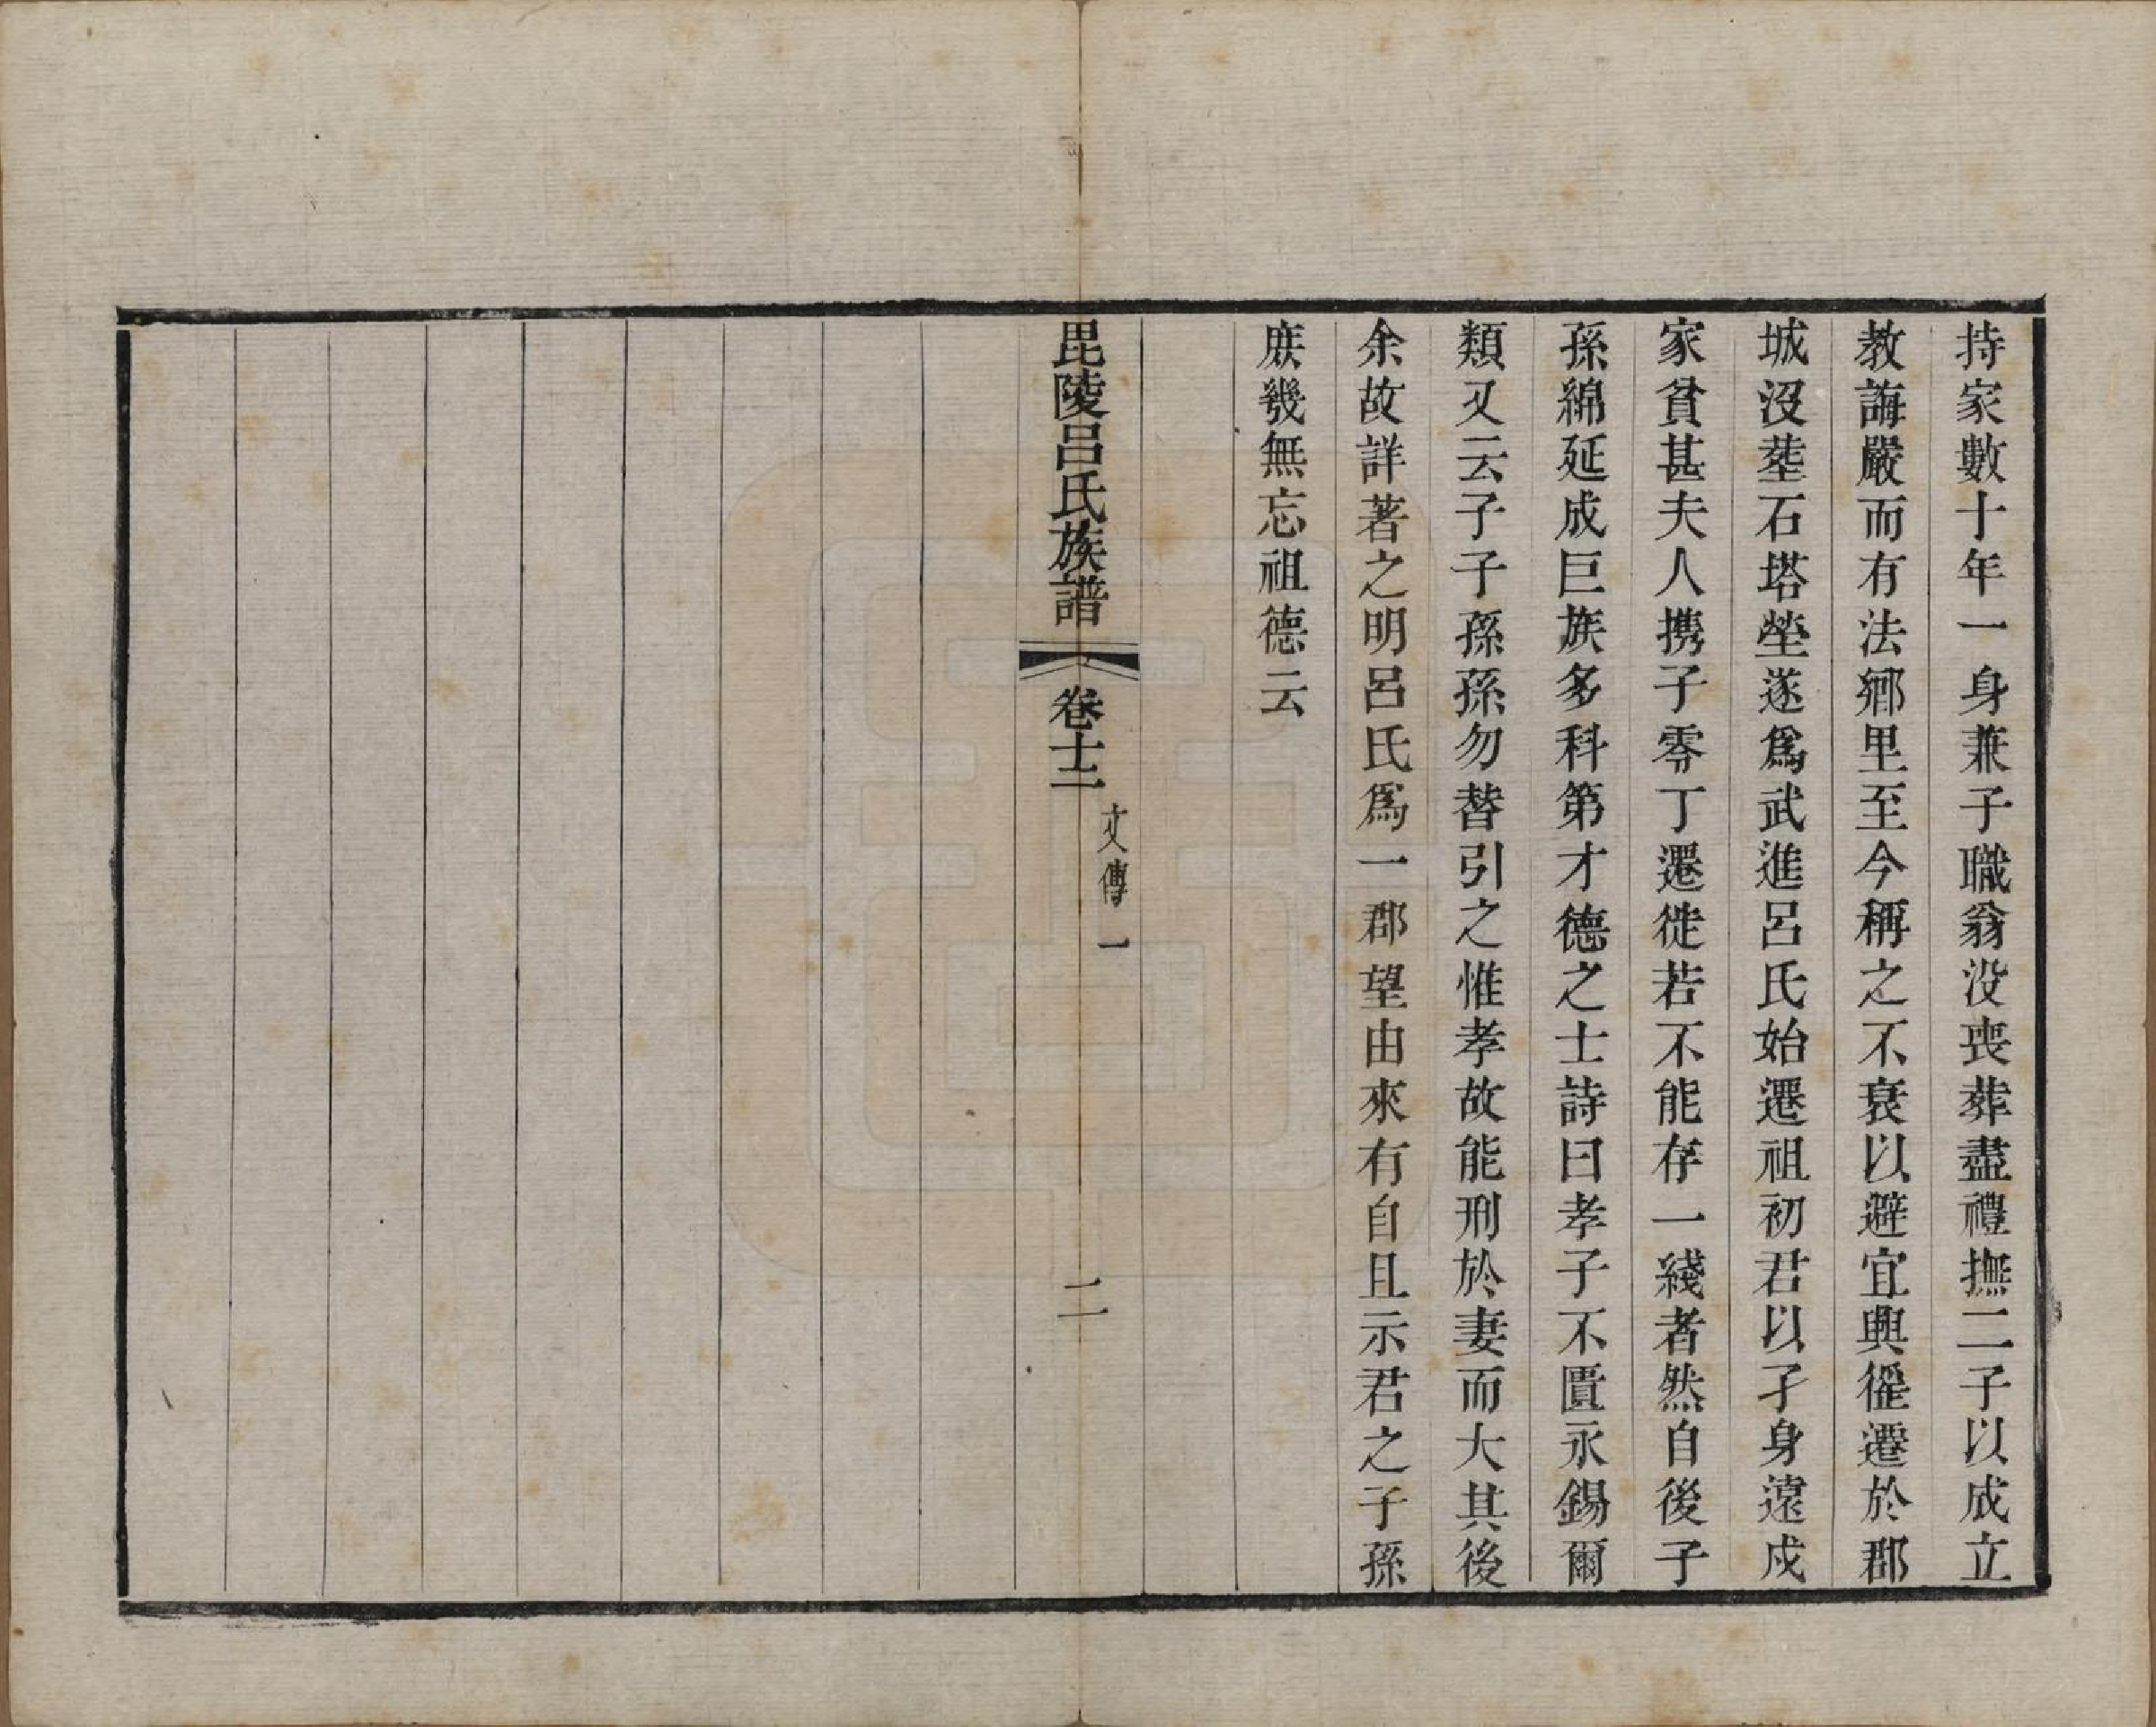 持家數十年一身兼子職翁没喪葬盡禮撫二子以成立
教誨嚴而有法鄉里至今稱之不衰以避宜興徭遷於郡
城沒塟石塔塋遂爲武進呂氏始遷祖初君以孑身遠戍
家貧甚夫人携子零丁遷徙若不能存一綫者然自後子
孫綿延成巨族多科第才德之士詩曰孝子不匱永錫爾
類又云子子孫孫勿替引之惟孝故能刑於妻而大其後
余故詳著之明呂氏爲一郡望由來有自且示君之子孫
庻幾無忘祖德云
毘陵呂氏族譜 卷十二 文傳一 二